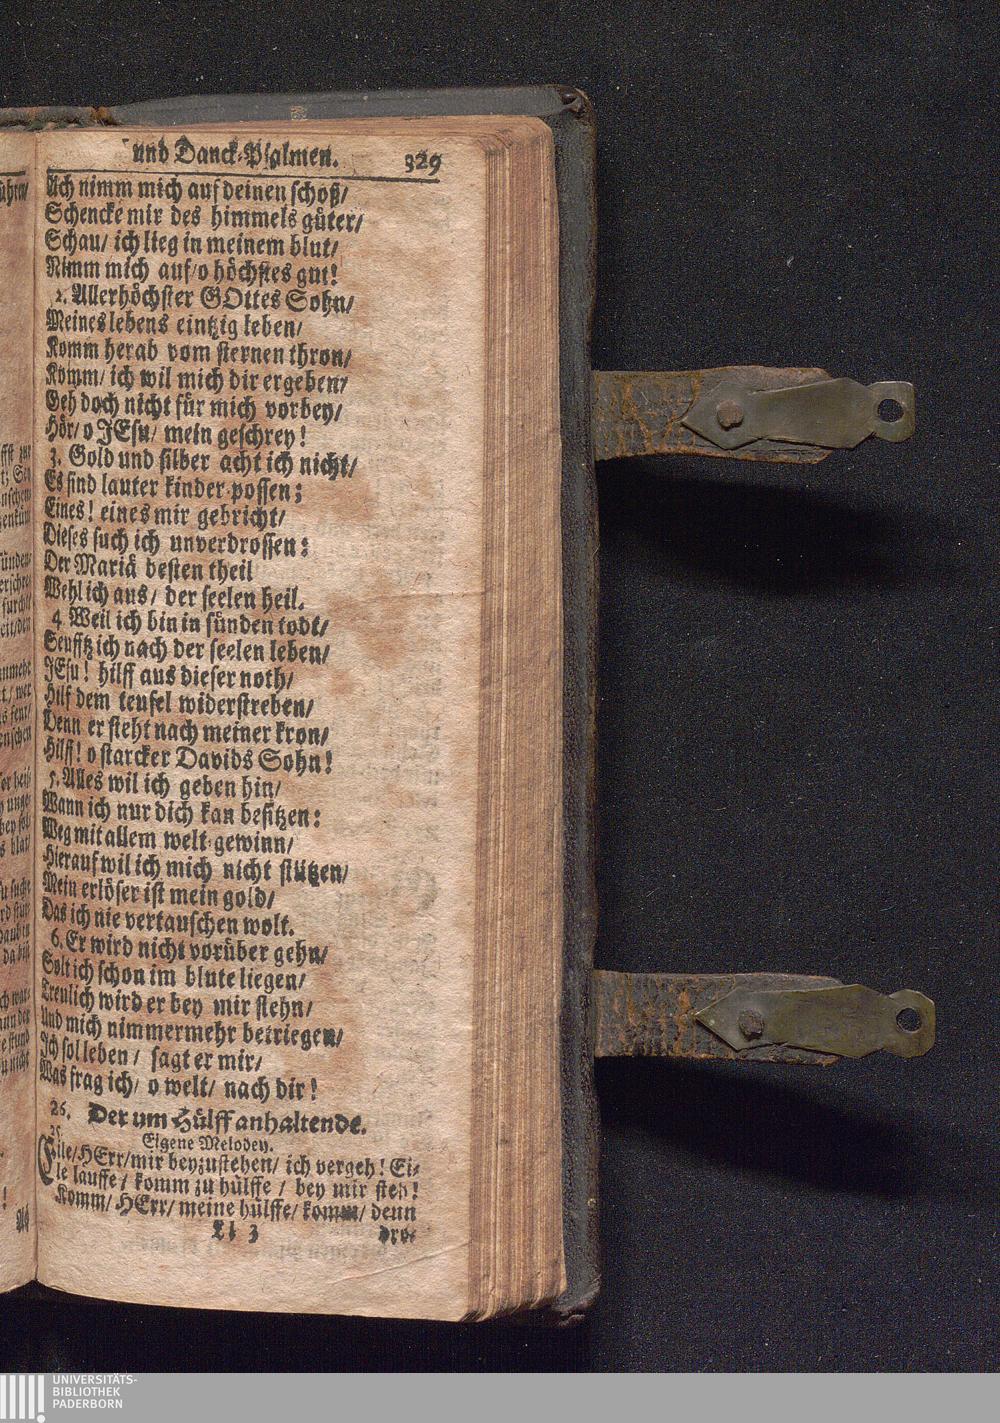 und Danck-Psalmen. 329
Ach nimm mich auf deinen schoß/
Schencke mir des himmels güter/
Schau/ ich lieg in meinem blut/
Nimm mich auf/ o höchstes gut!
2. Allerhöchster GOttes Sohn/
Meines lebens eintzig leben/
Komm herab vom sternen thron/
Komm/ ich wil mich dir ergeben/
Geh doch nicht für mich vorbey/
Hör/ o JEsu/ mein geschrey!
3. Gold und silber acht ich nicht/
Es sind lauter kinder-possen;
Eines! eines mir gebricht/
Dieses such ich unverdrossen:
Der Mariä besten theil
Wehl ich aus/ der seelen heil.
4. Weil ich bin in sünden todt/
Seufftz ich nach der seelen leben/
JEsu! hilff aus dieser noth/
Hilf dem teufel widerstreben/
Denn er steht nach meiner kron/
Hilff! o starcker Davids Sohn!
5. Alles wil ich geben hin/
Wann ich nur dich kan besitzen:
Weg mit allem welt-gewinn/
Hierauf wil ich mich nicht stützen/
Mein erlöser ist mein gold/
Das ich nie vertauschen wolt.
6. Er wird nicht vorüber gehn/
Solt ich schon im blute liegen/
Treulich wird er bey mir stehn/
Und mich nimmermehr betriegen/
Ich sol leben/ sagt er mir/
Was frag ich/ o welt/ nach dir!
26. Der um Hülff anhaltende.
25. Eigene Melodey.
Eile/ HErr/ mir beyzustehen/ ich vergeh! Ei-
le lauffe/ komm zu hülffe/ bey mir steh!
Komm/ HErr/ meine hülffe/ komm/ denn
Ll 3 dro-
UNIVERSITÄTS-
BIBLIOTHEK
PADERBORN